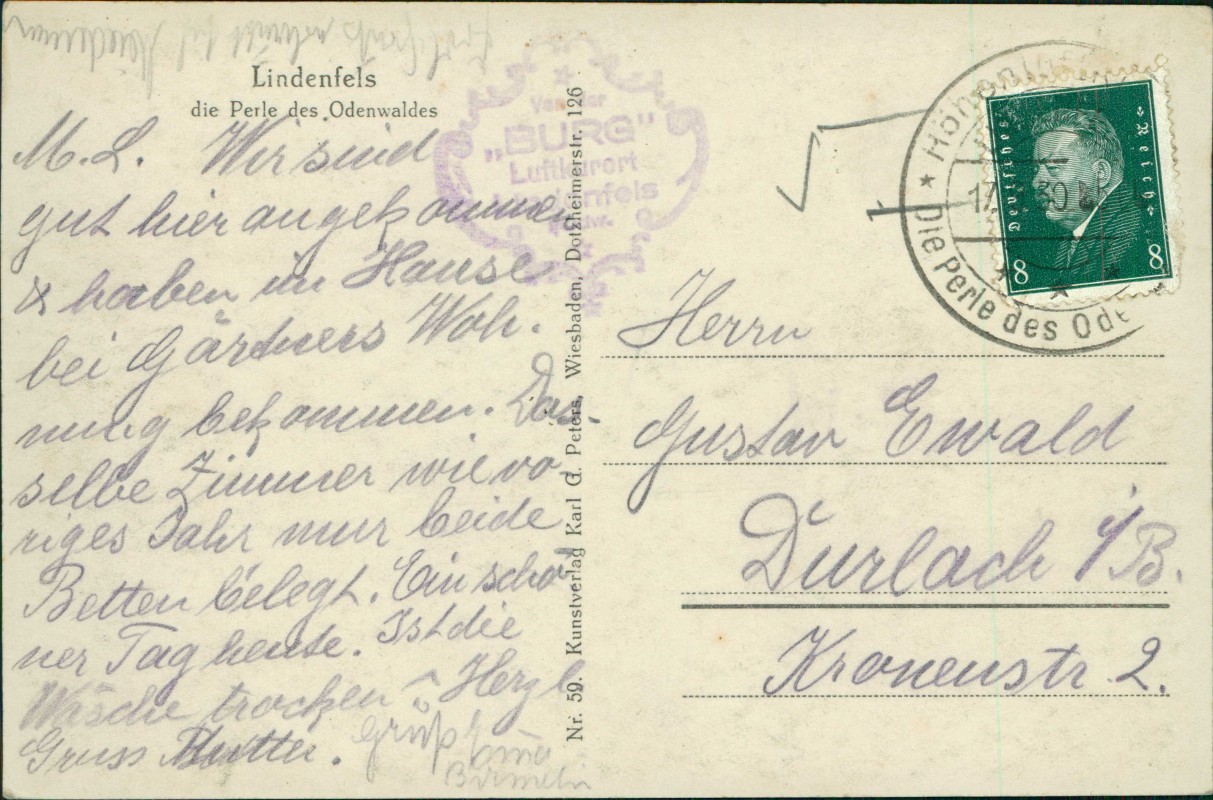 Lindenfels
die Perle des Odenwaldes
M. L. Wir sind
gut hier angekommen
& haben im Hause
bei Gärtners Woh-
nung bekommen. Das-
selbe Zimmer wie vo
riges Jahr nur beide
Betten belegt. Ein schö
ner Tag heute. Ist die
Wäsche trocken - Herzl
Gruss Mutter.
Grüß
Von der
„BURG"
Luftkurort
Lindenfels
Nr. 59. Kunstverlag Karl d. Peters, Wiesbaden, Dotzheimerstr. 126
Deutsches Reich
8 8
* Höhenluft
17. 30
Die Perle des Ode
Herrn
Gustav Ewald
Durlach i/B.
Kronenstr 2.